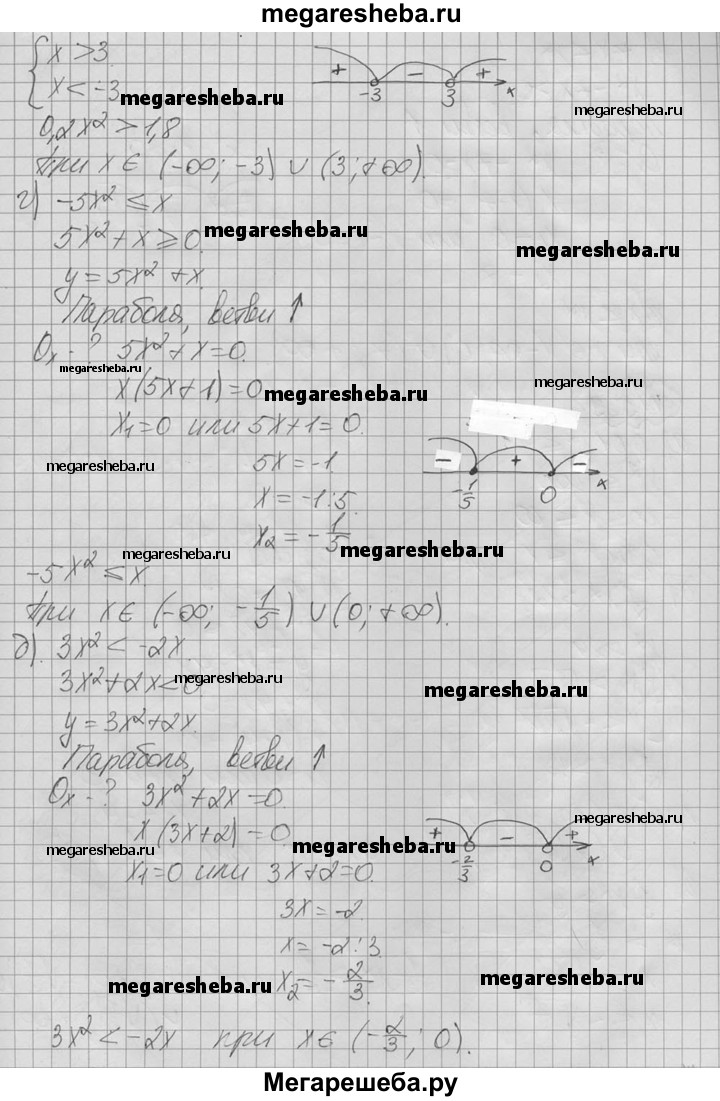 megaresheba.ru
{ x > 3.
x < -3
+ - + -3 3 x
megaresheba.ru
megaresheba.ru
0,2x² > 1,8
при x ∈ (-∞; -3) ∪ (3; +∞).
г) -5x² ≤ x
5x² + x ≥ 0.
megaresheba.ru
megaresheba.ru
y = 5x² + x.
Парабола, ветви ↑
Ox - ? 5x² + x = 0.
megaresheba.ru
x(5x + 1) = 0
megaresheba.ru
megaresheba.ru
x₁ = 0 или 5x + 1 = 0.
megaresheba.ru
5x = -1
- + - -1/5 0 x
x = -1 : 5.
x₂ = -1/5
megaresheba.ru
megaresheba.ru
-5x² ≤ x
при x ∈ (-∞; -1/5) ∪ (0; +∞).
д) 3x² < -2x.
3x² + 2x < 0
megaresheba.ru
megaresheba.ru
y = 3x² + 2x.
Парабола, ветви ↑
Ox - ? 3x² + 2x = 0.
megaresheba.ru
x(3x + 2) = 0.
megaresheba.ru
megaresheba.ru
+ - + -2/3 0 x
x₁ = 0 или 3x + 2 = 0.
3x = -2.
x = -2 : 3.
x₂ = -2/3.
megaresheba.ru
megaresheba.ru
3x² < -2x при x ∈ (-2/3; 0).
Мегарешеба.ру